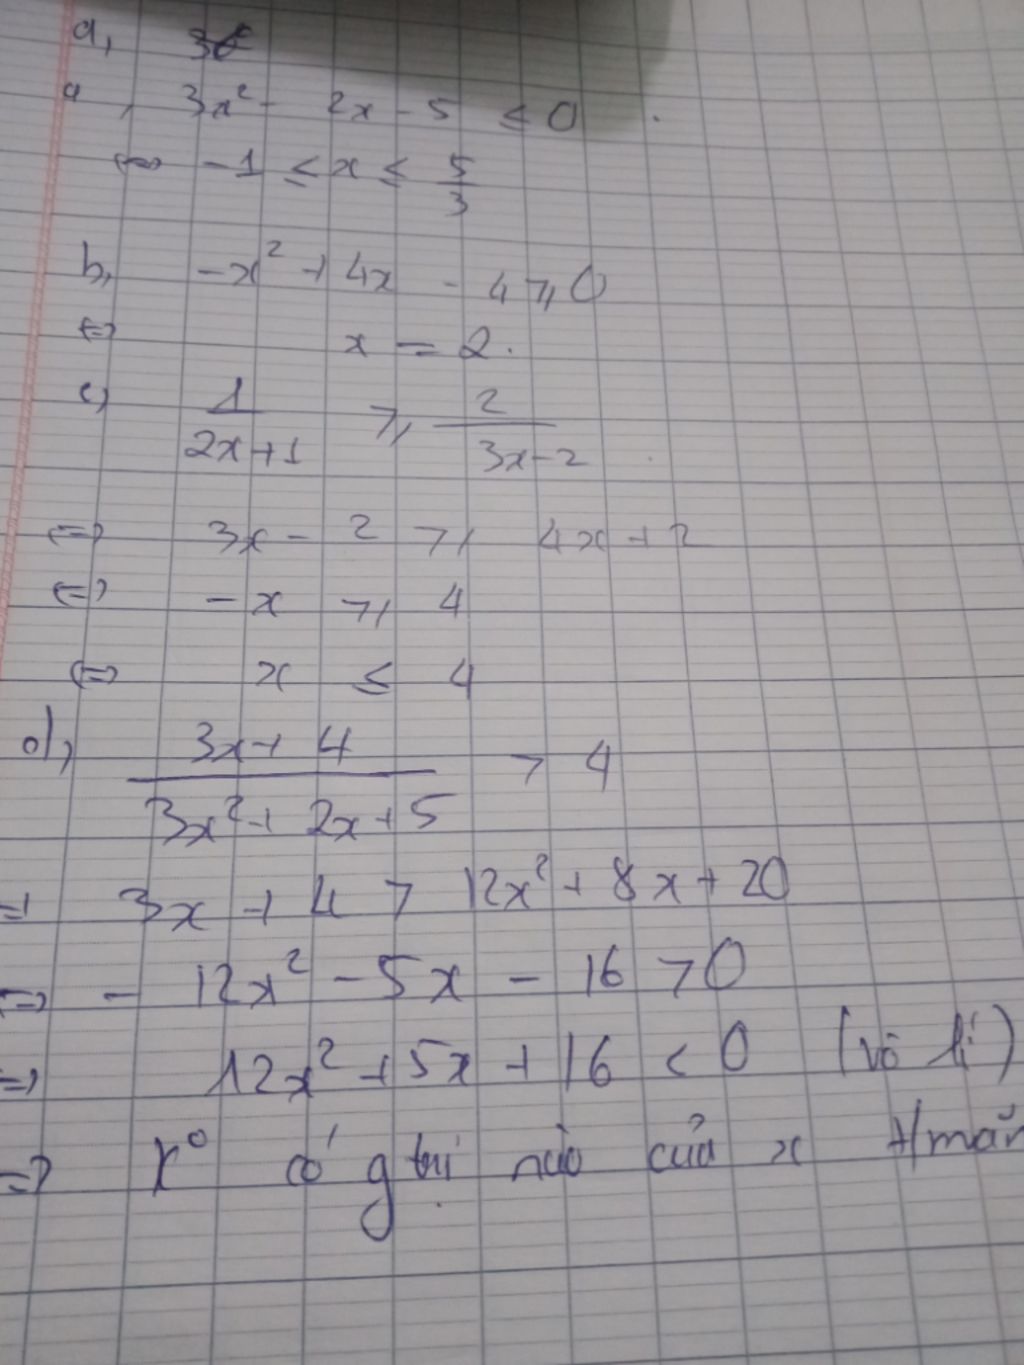 a,
a, 3x² - 2x - 5 ≤ 0
⇔ -1 ≤ x ≤ 5/3
b, -x² + 4x - 4 ≥ 0
⇔ x = 2.
c, 1/(2x+1) ≥ 2/(3x-2)
⇔ 3x - 2 ≥ 4x + 2
⇔ -x ≥ 4
⇔ x ≤ 4
d, (3x + 4)/(3x² + 2x + 5) > 4
⇒ 3x + 4 > 12x² + 8x + 20
⇔ - 12x² - 5x - 16 > 0
⇒ 12x² + 5x + 16 < 0 (vô lí)
⇒ K° có g trị nào của x t/mãn